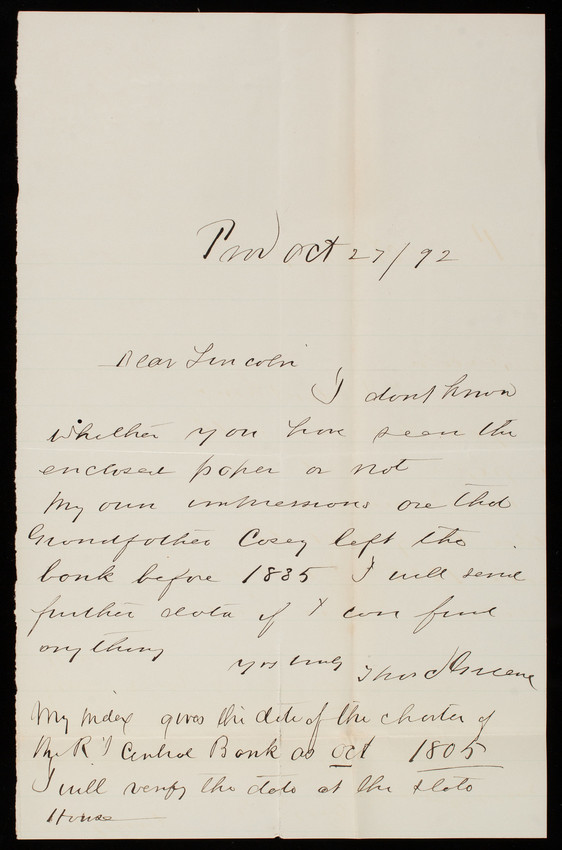 Prov Oct 27/92
Dear Lincoln
I dont know
whether you have seen the
enclosed paper or not
My own impressions are that
Grandfather Casey left the
bank before 1835 I will send
further data if I can find
anything
yrs truly Thos L Greene
My Index gives the date of the charter of
the R I Central Bank as Oct 1805
I will verify the date at the State
House